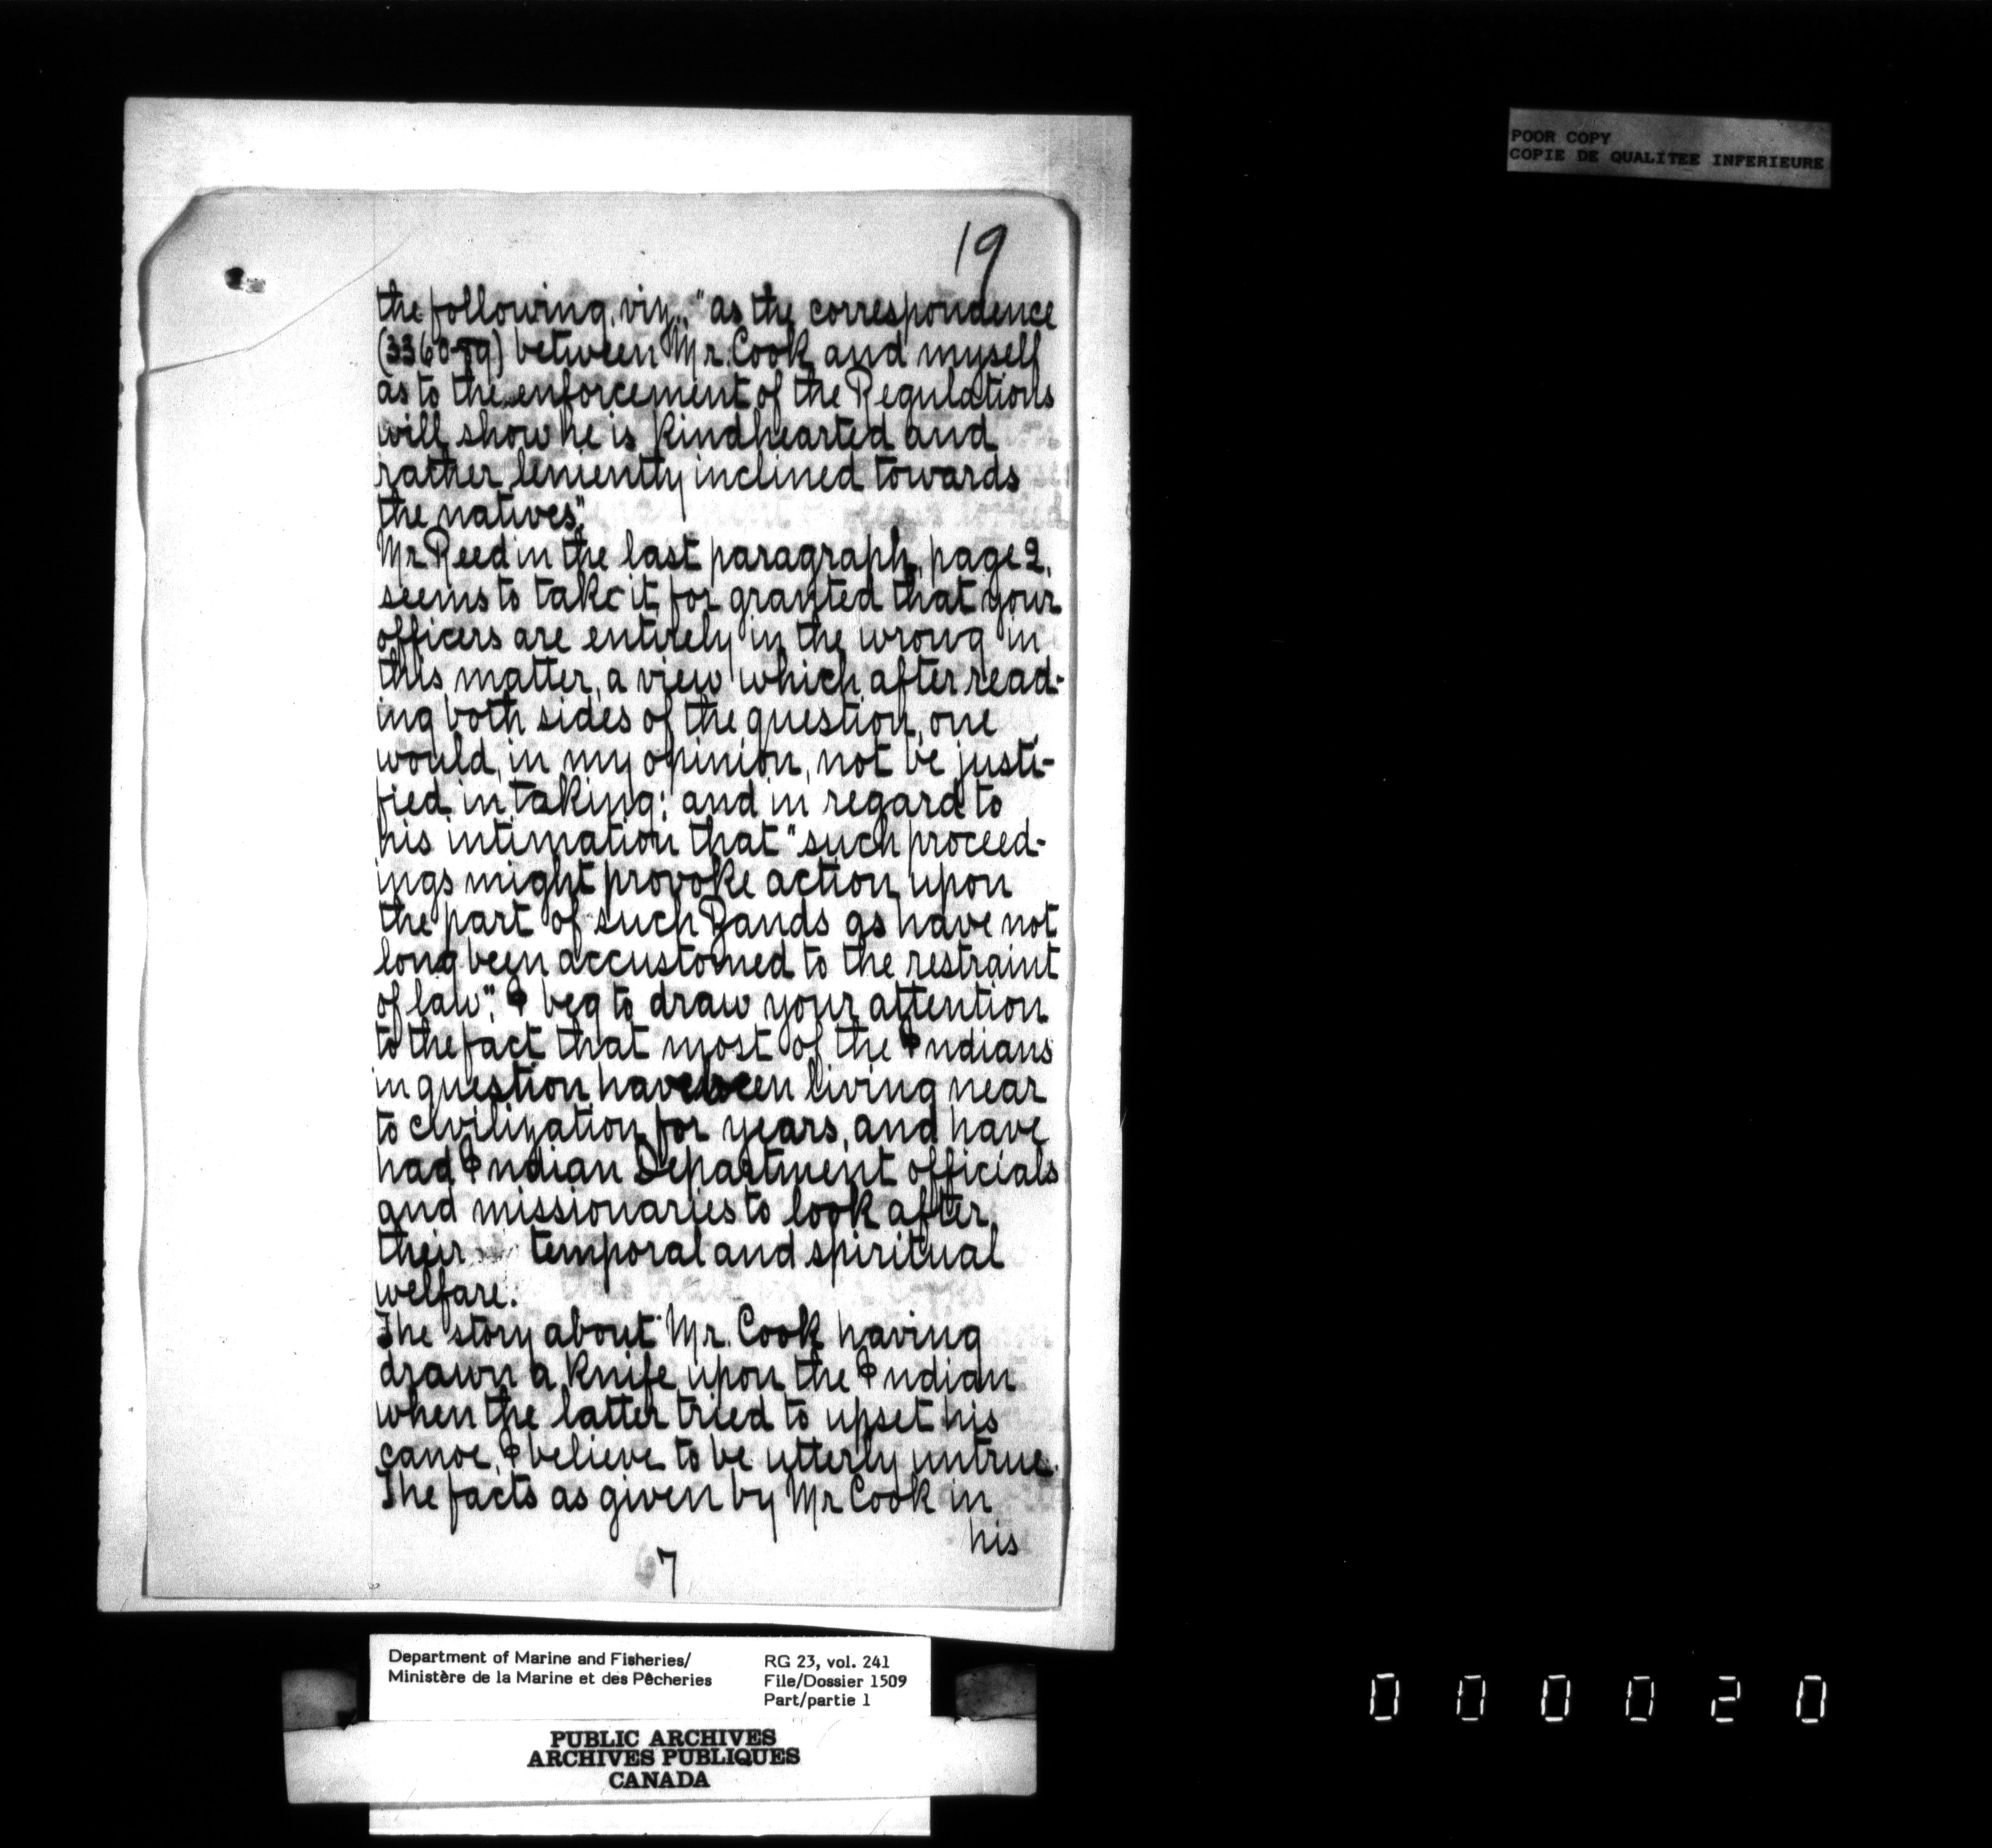 POOR COPY
COPIE DE QUALITEE INFERIEURE
19
the following, viz., "as the correspondence
between Mr. Cook and myself
as to the enforcement of the Regulations
will show he is kindhearted and
rather leniently inclined towards
the natives".
Mr Reed in the last paragraph, page 2,
seems to take it for granted that your
officers are entirely in the wrong in
this matter, a view which after read-
ing both sides of the question, one
would, in my opinion, not be justi-
fied in taking: and in regard to
his intimation that "such proceed-
ings might provoke action upon
the part of such Bands as have not
long been accustomed to the restraint
of law", I beg to draw your attention
to the fact that most of the Indians
in question have been living near
to civilization for years, and have
had Indian Department officials
and missionaries to look after
their temporal and spiritual
welfare.
The story about Mr. Cook having
drawn a knife upon the Indian
when the latter tried to upset his
canoe, I believe to be utterly untrue.
The facts as given by Mr Cook in
his
7
Department of Marine and Fisheries/
Ministère de la Marine et des Pêcheries
RG 23, vol. 241
File/Dossier 1509
Part/partie 1
PUBLIC ARCHIVES
ARCHIVES PUBLIQUES
CANADA
0 0 0 0 2 0